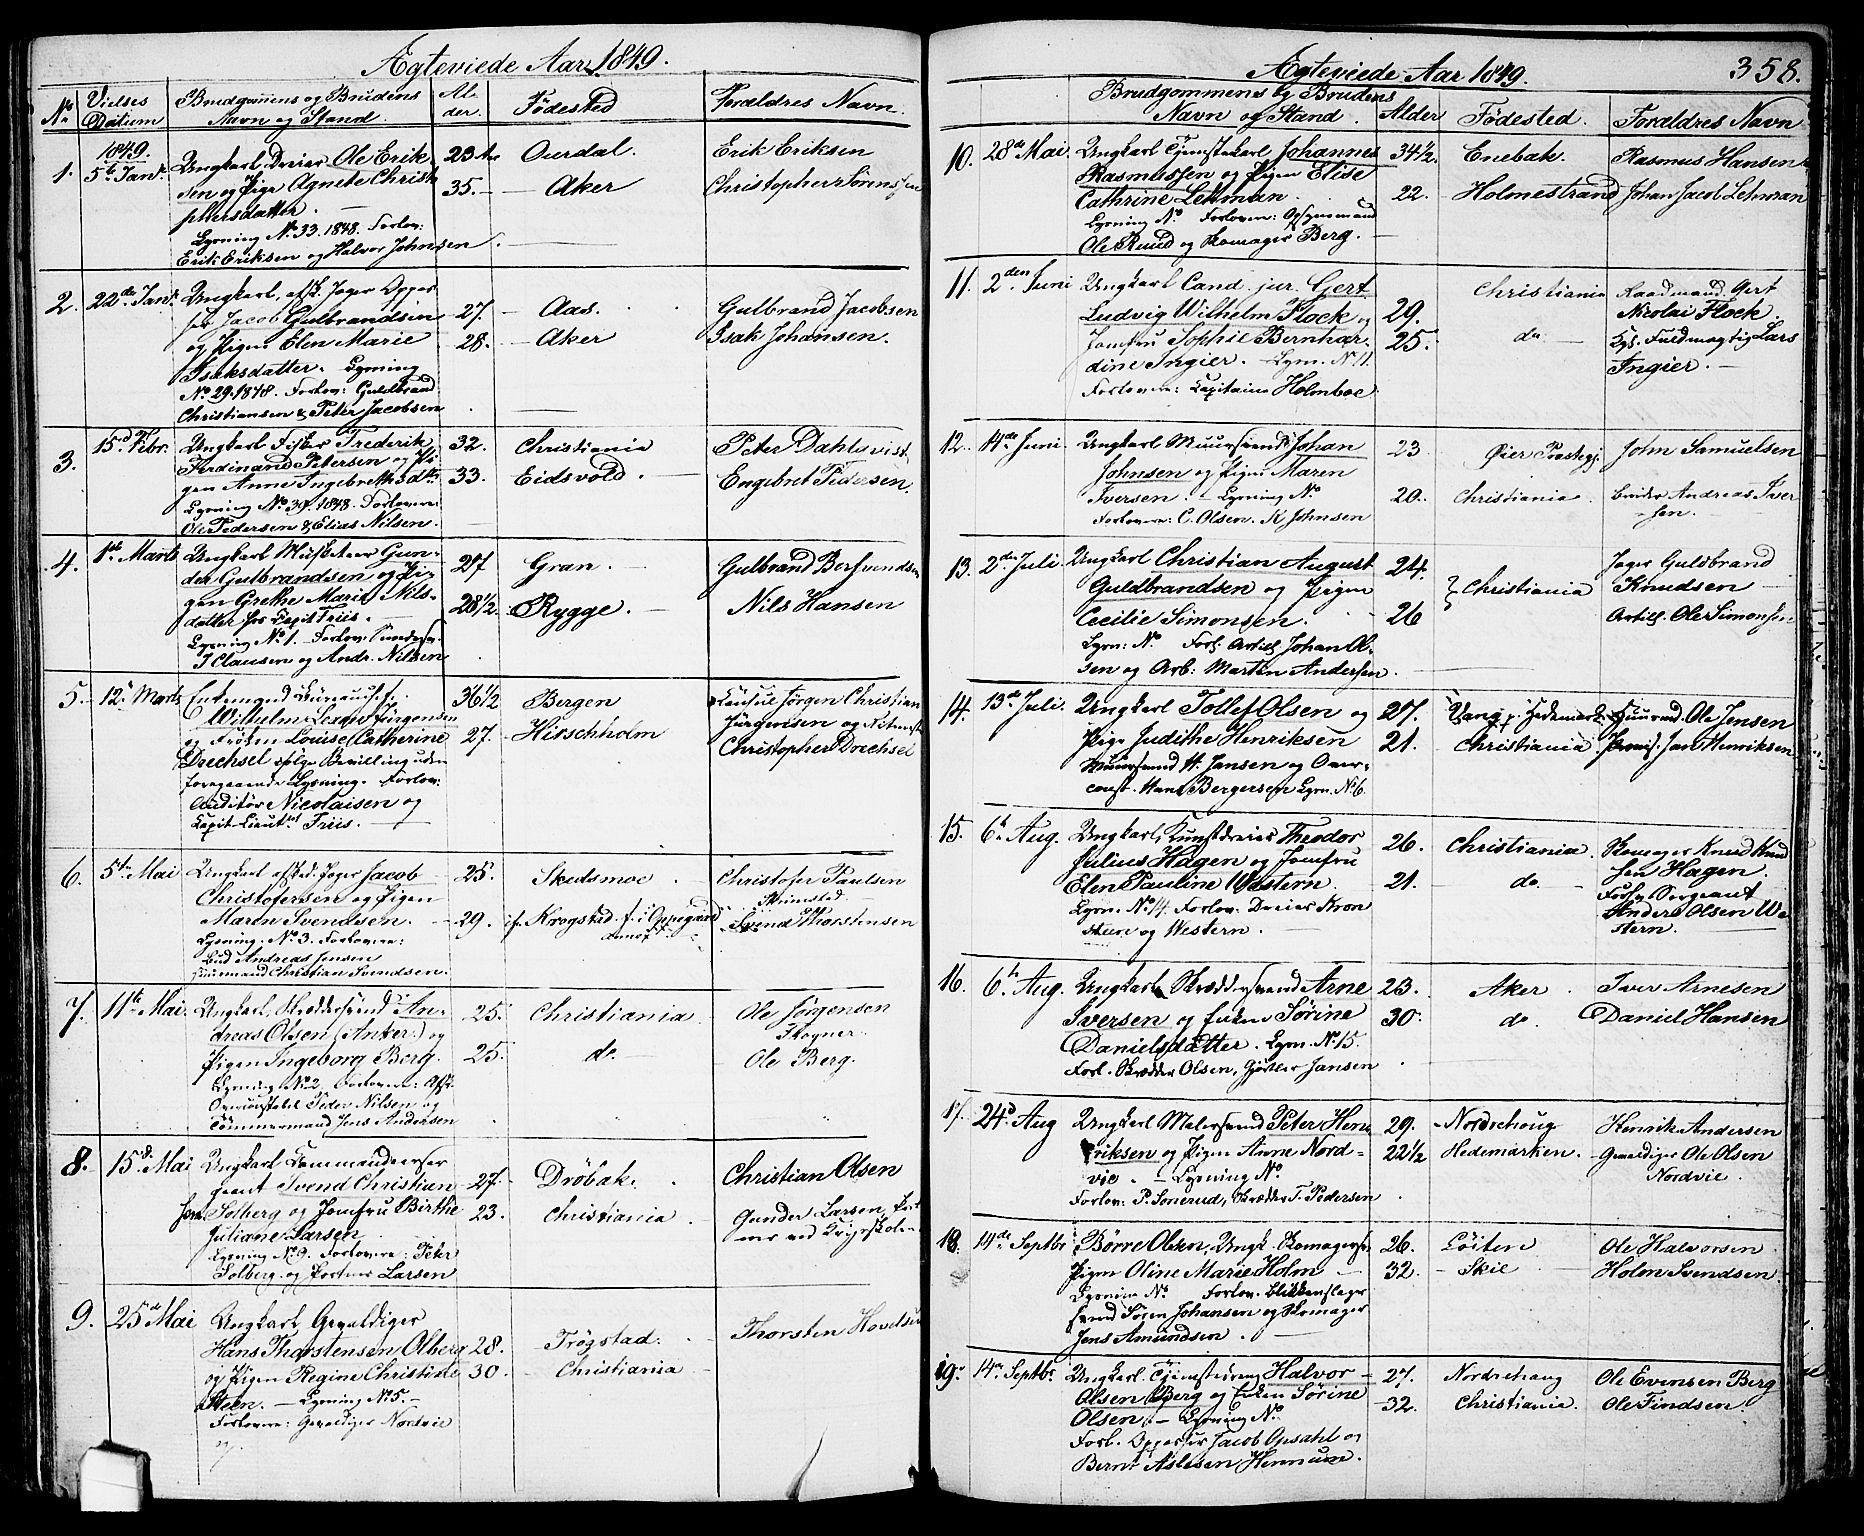 Ægteviede Aar 1849.
No
Vielses Datum
Brudgommens og Brudens Navn og Stand.
Alder
Fødested
Forældres Navn.
1.
1849.
5te Janr.
Ungkarl, Dreier Ole Erik-
sen og Pige Agnete Christo-
phersdatter.
Lysning No. 33. 1848. Forlov:
Erik Eriksen og Halvor Johnsen.
23 Aar
35.
Ourdal.
Aker
Erik Eriksen
Christopher Sørensen
2.
22de Janr.
Ungkarl, afsk. Jæger Oppas-
ser Jacob Gulbrandsen
og Pigen Elen Marie
Isaksdatter. Lysning
No. 29. 1848. Forlov: Guldbrand
Christiansen & Peter Jacobsen
27.
28.
Aas.
Aker
Gulbrand Jacobsen
Isak Johansen.
3.
15d Febr.
Ungkarl Fisker Frederik
Ferdinand Petersen og Pi-
gen Anne Ingebrethsdtr.
Lysning No. 34. 1848. Forlovere:
Ole Pedersen & Elias Nilsen.
32.
33.
Christiania
Eidsvold.
Peter Dahlqvist
Engebret Pedersen.
4.
1ste Marts
Ungkarl Musketeer Gun-
der Gulbrandsen og Pi-
gen Grethe Marie Nils-
datter hos Capit Friis.
Lysning No. 1. Forlov:
J Clausen og Andr. Nilsen
27
28 1/2
Gran.
Rygge.
Gulbrand Bersvendsen
Nils Hansen
5.
12te Marts
Enkemand
Wilhelm Jürgensen
og Frøken Louise Catherine
Drechsel ifølge Bevilling uden
foregaaende Lysning. Forlov:
Auditør Nicolaisen og
Capit-Lieutnt Friis.
36 1/2
27.
Bergen
Hirschholm
Consul Jørgen Christian
Jürgensen og
Christopher Drechsel
6.
5te Mai
Ungkarl afsked. Jæger Jacob
Christofersen og Pigen
Maren Svendsen.
Lysning: No. 3. Forlovere:
Bud Andreas Jensen
Huusmand Christian Svendsen.
25.
29.
Skedsmoe
Krogstad. f. i Oppegaard
Christofer Paulsen
Svend Thorstensen
7.
11te Mai.
Ungkarl, Skræddersvend An-
dreas Olsen (Anker) og
Pigen Ingeborg Berg.
Lysning No. 2 Forlovere: Afsk.
Overconstabel Peder Nilsen og
Tømmermand Jens Andersen
25.
25.
Christiania
do
Ole Jørgensen
Skogner
Ole Berg.
8.
15de Mai
Ungkarl Commandeerser-
geant Svend Christian
Solberg og Jomfru Birthe
Juliane Larsen.
Lysning No. 9. Forlovere: Peter
Solberg og Portner Larsen
27.
23.
Drøbak.
Christiania
Christian Olsen
Gunder Larsen, Port-
ner ved Krigsskolen
9.
25de Mai
Ungkarl Gevaldiger
Hans Thorstensen Olberg
og Pigen Regine Christine
Steen. Lysning No. 5.
Forlovere: Gevaldiger Nordvie
og.
28.
30.
Trøgstad.
Christiania
Thorsten Hovelsen
Ægteviede Aar 1849.
358.
Brudgommens og Brudens
Navn og Stand.
Alder
Fødested.
Forældres Navn
10.
28de Mai
Ungkarl Tjenstekarl Johannes
Rasmussen og Pigen Elise
Cathrine Lehman.
Lysning No Forlovere: Opsynsmand
Ole Ruud og Skomager Berg.
34 1/2.
22.
Enebak.
Holmestrand
Rasmus Hansen
Johan Jacob Lehman
11.
2den Juni
Ungkarl Cand. jur. Gert
Ludvig Wilhelm Flock og
Jomfru Sophie Bernhar-
dine Ingier. Lysn. No. 11.
Forlovere: Capitaine Holmboe
29.
25.
Christiania
do
Raadmand Gert
Nicolai Flock.
Fuldmægtig Lars
Ingier.
12.
14de Juni
Ungkarl Muursvend Johan
Johnsen og Pigen Maren
Iversen. Lysning No
Forlovere: C. Olsen. K Johnsen
23
20.
Øier Præstegj.
Christiania.
John Samuelsen
Andreas Iver-
sen.
13.
2den Juli
Ungkarl Christian August
Guldbrandsen og Pigen
Cecilie Simonsen.
Lysn: No Forl: Artill Johan Ol-
sen og Arb: Martin Andersen.
24.
26
Christiania
Jæger Guldbrand
Knudsen
Artill. Ole Simonsen
14.
13de Juli.
Ungkarl Tollef Olsen og
Pige Judithe Henriksen
Muursvend H. Jansen og Over-
const. Hans Bergersen Lysn. No. 6.
27.
21.
Vang p. Hedemark.
Christiania
Huusmd. Ole Jensen
Jan Henriksen
15.
6te Aug.
Ungkarl, Kunstdreier Theodor
Julius Hagen og Jomfru
Elen Pauline Western.
Lysn. No. 14. Forlov. Dreier Kron
og Western.
26.
21.
Christiania.
do.
Skomager Knud Knud-
sen Hagen.
Forhv. Sergeant
Anders Olsen We-
stern.
16.
6te Aug.
Ungkarl Skræddersvend Arne
Iversen og Enken Sørine
Danielsdatter. Lysn. No. 15.
Forl. Skrædder Olsen, Gjørtler Jansen
23.
30.
Aker.
do.
Iver Arnesen
Daniel Hansen
17.
24d Aug
Ungkarl Malersvend Peter Hen-
riksen og Pigen Anne Nord-
vie. Lysning No.
Forlov: P. Sonerud, Skrædder T. Pedersen
29.
22 1/2
Nordrehoug
Hedemarken.
Henrik Andersen
Gevaldiger Ole Olsen
Nordvie.
18.
14de Septbr
Børre Olsen, Ungk. Skomagersv.
Pigen Oline Marie Holm
Lysning No. Forlov. Blikkenslager
svend Søren Johansen og Skomager
Jens Amundsen.
26.
32.
Løiten
Skie
Ole Halvorsen
Holm Svendsen
19.
14de Septbr.
Ungkarl. Tjenstedreng Halvor
Olsen Berg og Enken Sørine
Olsen. Lysning No.
Forl. Oppasser Jacob Opsahl og
Bernt Aslesen Hennum.
27.
32.
Nordrehaug
Christiania.
Ole Evensen Berg
Ole Findsen.